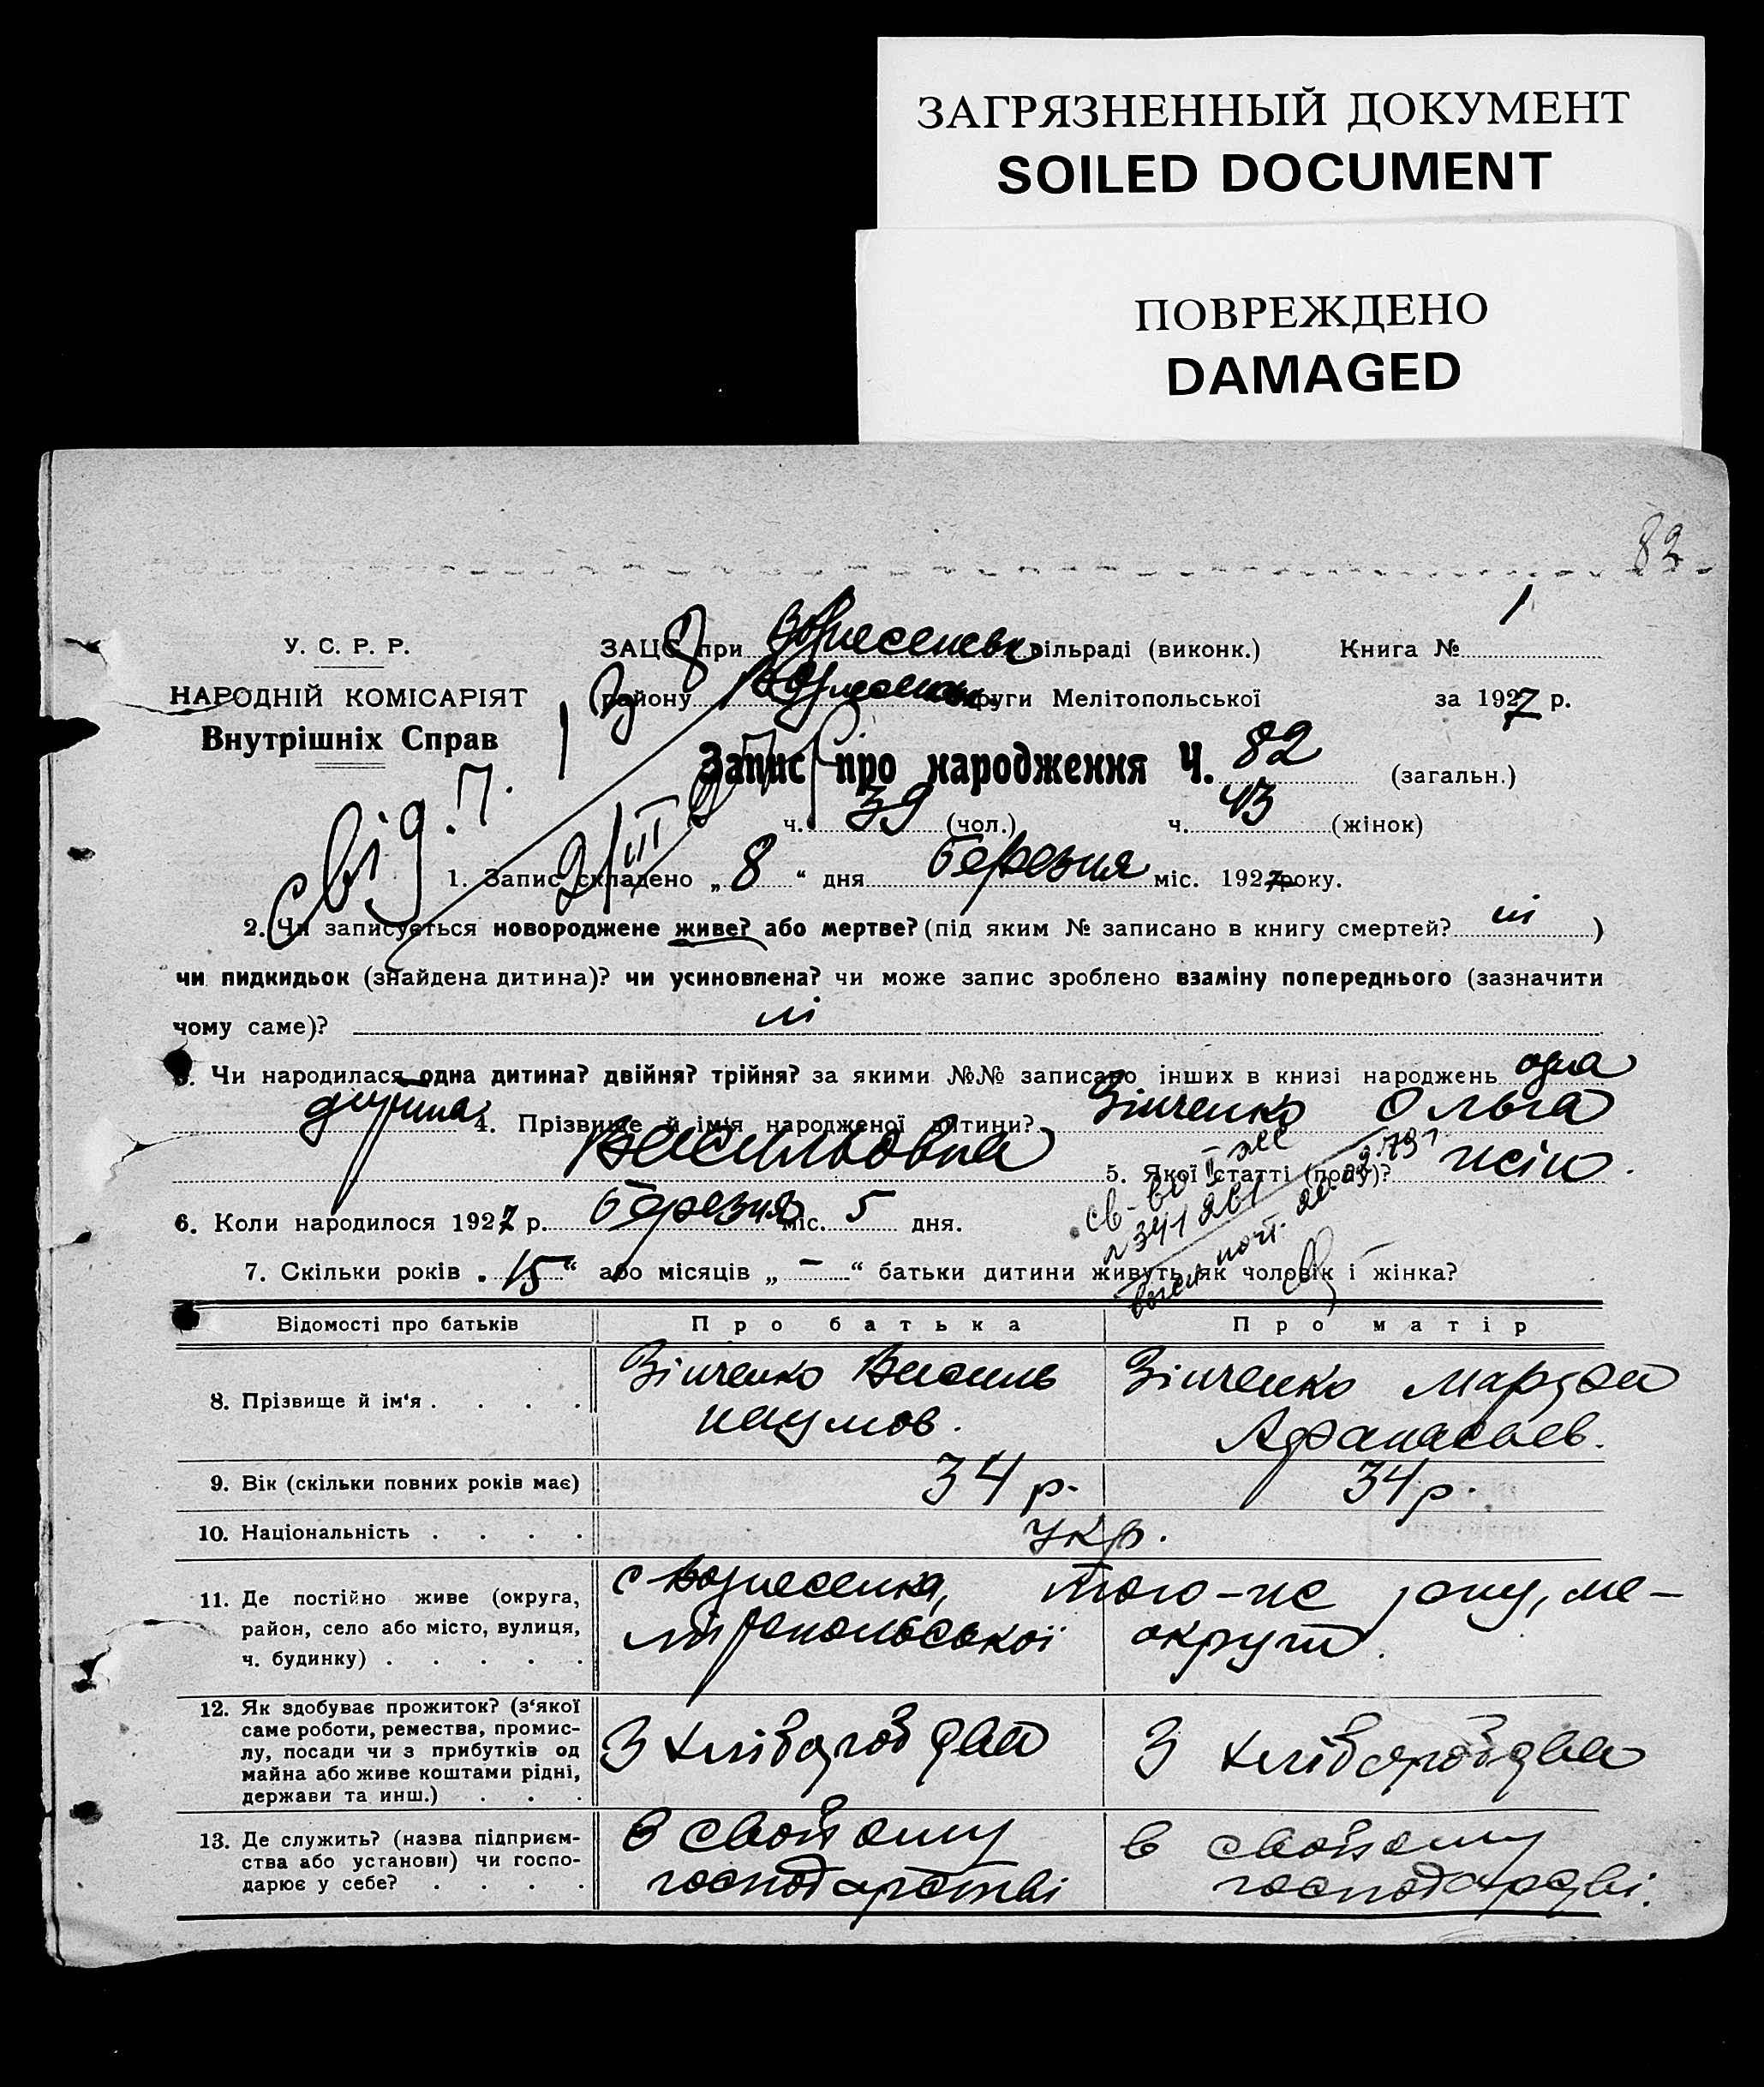 ЗАГРЯЗНЕННЫЙ ДОКУМЕНТ
SOILED DOCUMENT
ПОВРЕЖДЕНО
DAMAGED
82
У. С. Р. Р.
НАРОДНІЙ КОМІСАРІЯТ
Внутрішніх Справ
ЗАЦС при Вознесенськ сільраді (виконк.) Книга № 1
району Вознесенськ. округи Мелітопольської за 1927 р.
Запис про народження Ч. 82 (загальн.)
ч. 39 (чол.) ч. 43 (жінок)
1. Запис складено „8“ дня березня міс. 1927 року.
2. Чи записується новороджене живе? або мертве? (під яким № записано в книгу смертей? ні )
чи пидкидьок (знайдена дитина)? чи усиновлена? чи може запис зроблено взаміну попереднього (зазначити
чому саме)? ні
3. Чи народилася одна дитина? двійня? трійня? за якими №№ записано інших в книзі народжень одна
дитина 4. Прізвище й ім'я народженої дитини? Зінченко Ольга
Васильовна 5. Якої статті (полу)?
6. Коли народилося 1927 р. березня міс. 5 дня.
7. Скільки років „15“ або місяців „–“ батьки дитини живуть як чоловік і жінка?
Відомості про батьків Про батька Про матір
8. Прізвище й ім'я . . . . Зінченко Василь Наумов. Зінченко Марфа Афанасьев.
9. Вік (скільки повних років має) 34 р. 34 р.
10. Національність . . . . Укр.
11. Де постійно живе (округа,
район, село або місто, вулиця,
ч. будинку) . . . . .
с Вознесенка, того-же ме-
літопольської округи.
12. Як здобуває прожиток? (з'якої
саме роботи, ремества, промис-
лу, посади чи з прибутків од
майна або живе коштами рідні,
держави та инш.) . . .
З хліборобдва З хліборобдва
13. Де служить? (назва підприєм-
ства або установи) чи госпо-
дарює у себе? . . . .
в свойому в свойому
господарстві господардві.